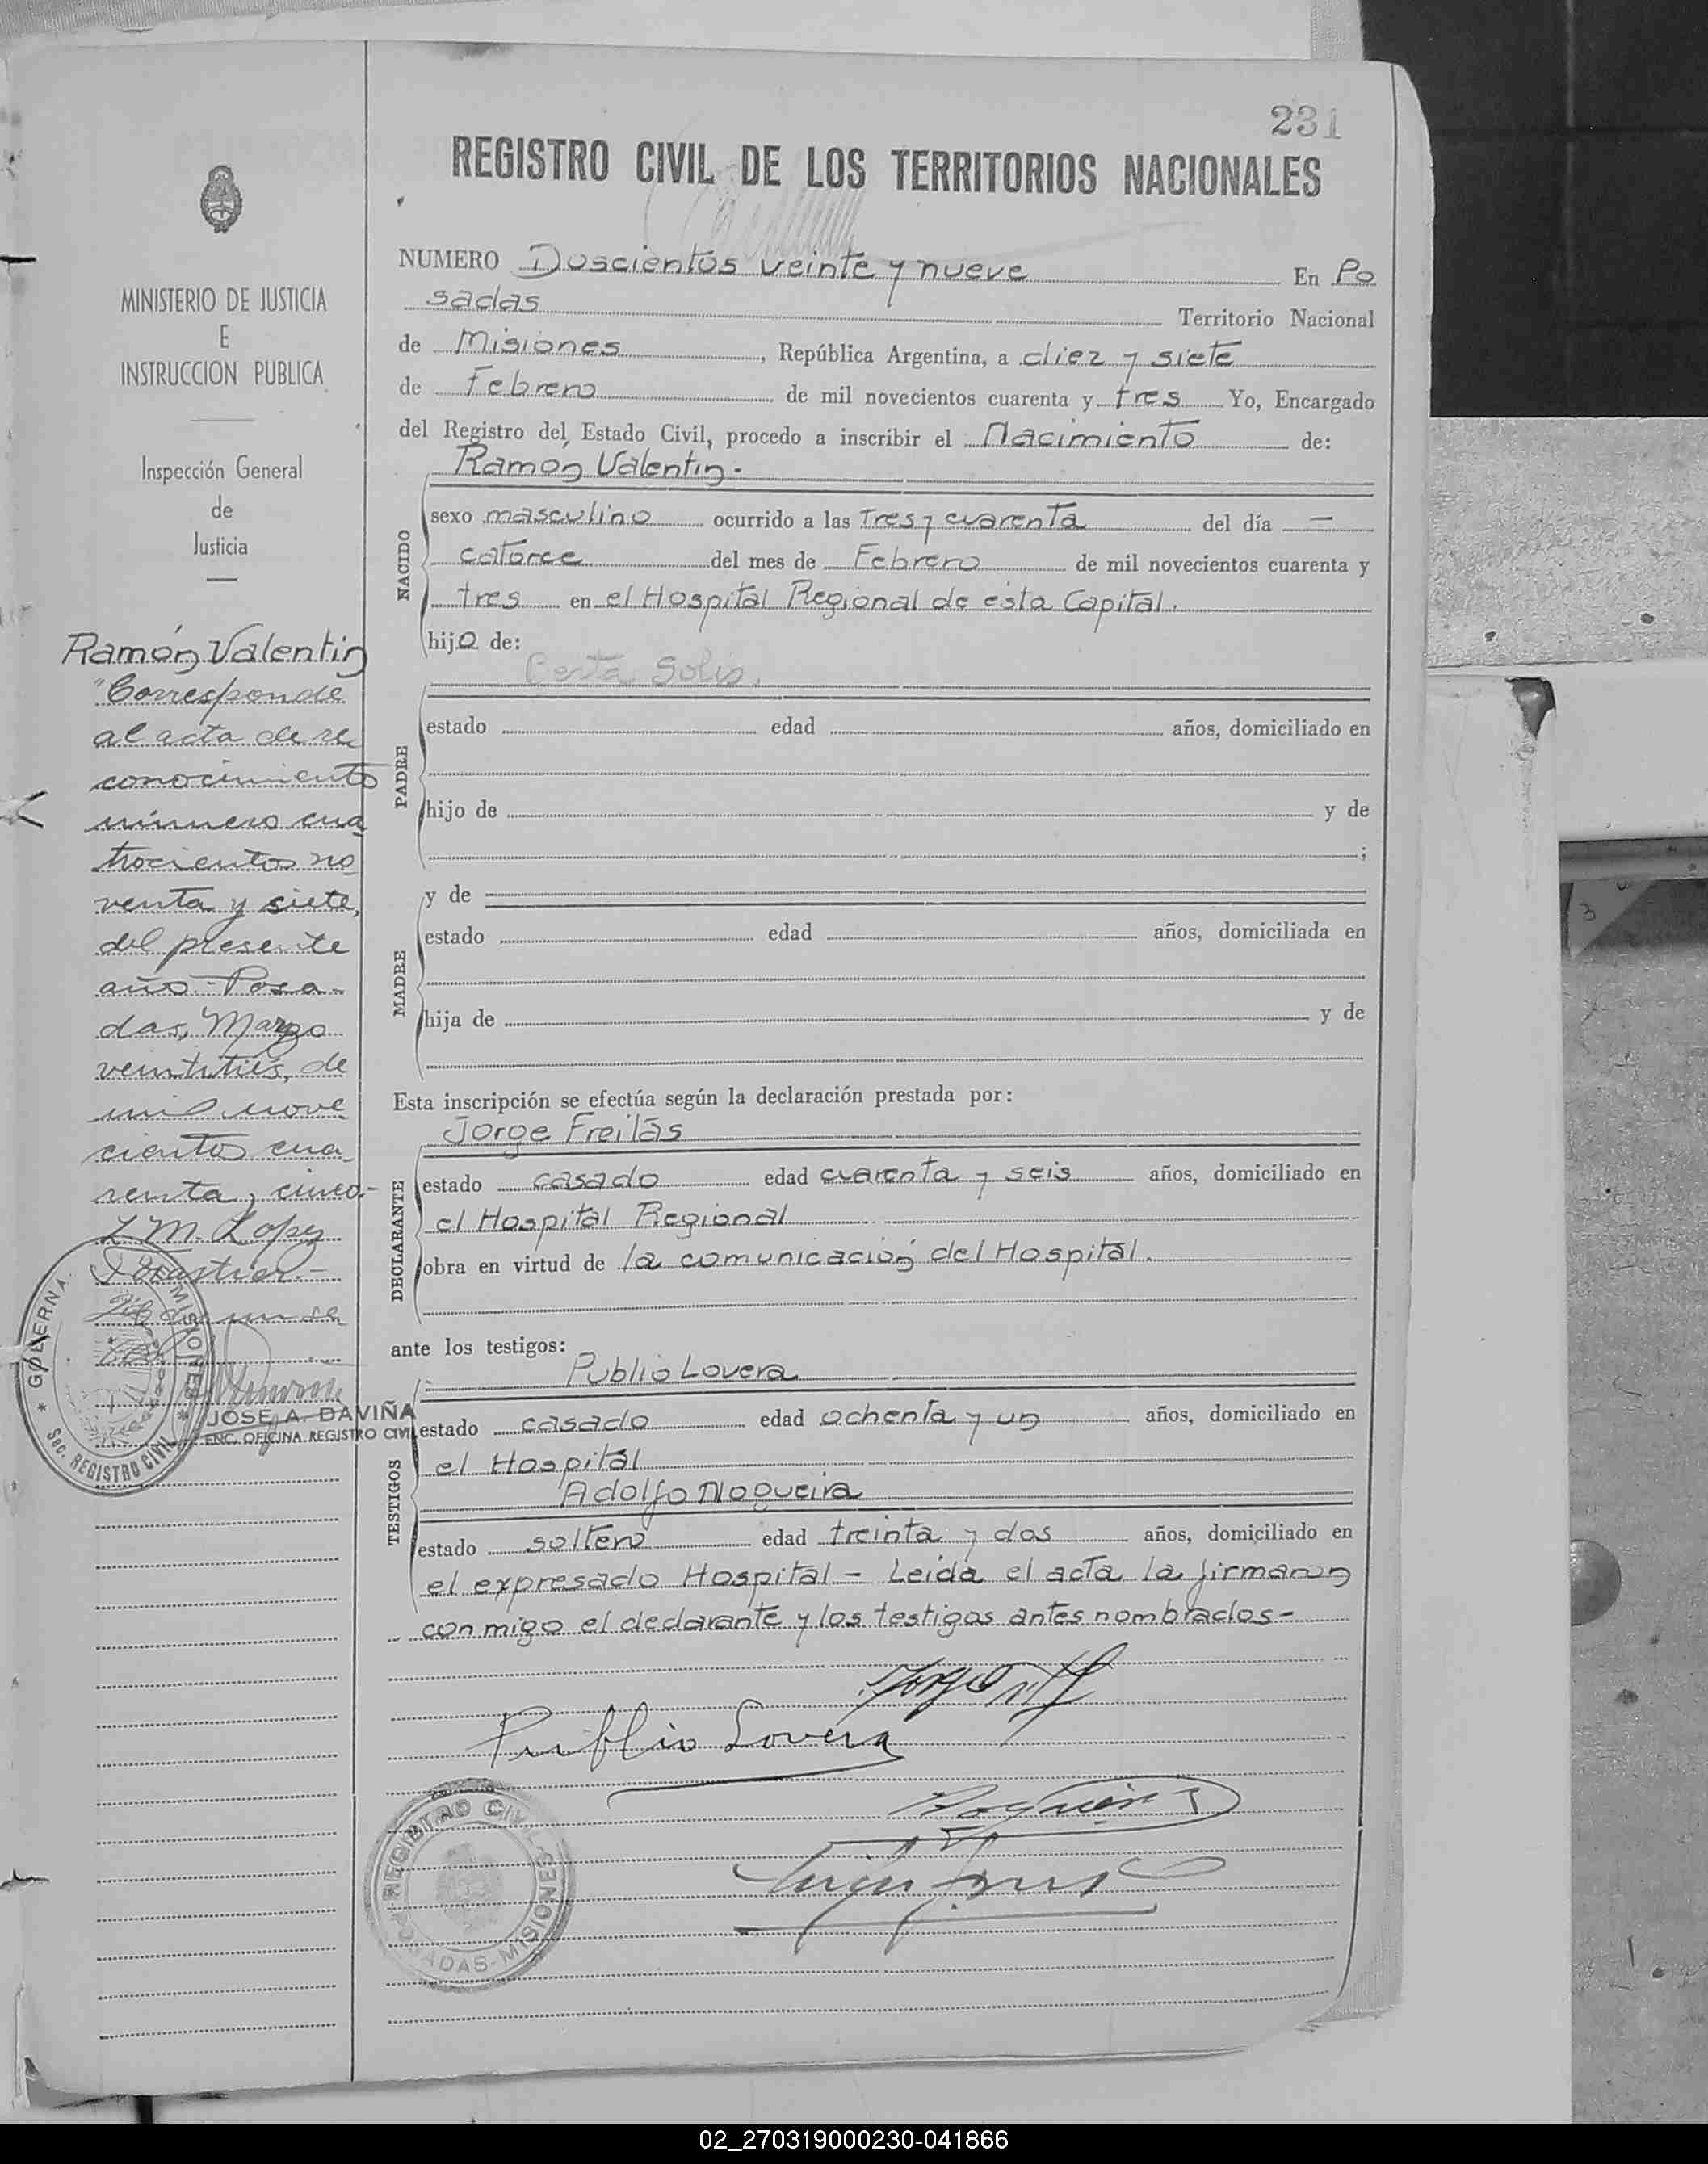 231
REGISTRO CIVIL DE LOS TERRITORIOS NACIONALES
NUMERO Doscientos veinte y nueve En Po
sadas Territorio Nacional
de Misiones, República Argentina, a diez y siete
de Febrero de mil novecientos cuarenta y tres Yo, Encargado
del Registro del Estado Civil, procedo a inscribir el Nacimiento de:
Ramón Valentin.
NACIDO
sexo masculino ocurrido a las tres y cuarenta del día —
catorce del mes de Febrero de mil novecientos cuarenta y
tres en el Hospital Regional de esta Capital.
hijo de:
Solis.
PADRE
estado edad años, domiciliado en
hijo de y de
;
MADRE
y de
estado edad años, domiciliada en
hija de y de
Esta inscripción se efectúa según la declaración prestada por:
Jorge Freitas
DECLARANTE
estado casado edad cuarenta y seis años, domiciliado en
el Hospital Regional
obra en virtud de la comunicación del Hospital.
ante los testigos:
Publio Lovera
TESTIGOS
estado casado edad ochenta y un años, domiciliado en
el Hospital
Adolfo Nogueira
estado soltero edad treinta y dos años, domiciliado en
el expresado Hospital - Leida el acta la firmaron
con migo el declarante y los testigos antes nombrados-
Publio Lovera
Nogueira
REGISTRO CIVIL
POSADAS-MISIONES
MINISTERIO DE JUSTICIA
E
INSTRUCCION PUBLICA
Inspección General
de
Justicia
Ramón Valentin
"Corresponde
al acta de re
conocimiento
número cua
trocientos no
venta y siete,
del presente
año.- Posa-
das, Marzo
veintitrés, de
mil nove
cientos cua
renta y cinco.-
L. M. Lopez
GOBERNA. MISIONES
Sec. REGISTRO CIVIL
JOSÉ A. DAVIÑA
ENC. OFICINA REGISTRO CIVIL
02_270319000230-041866